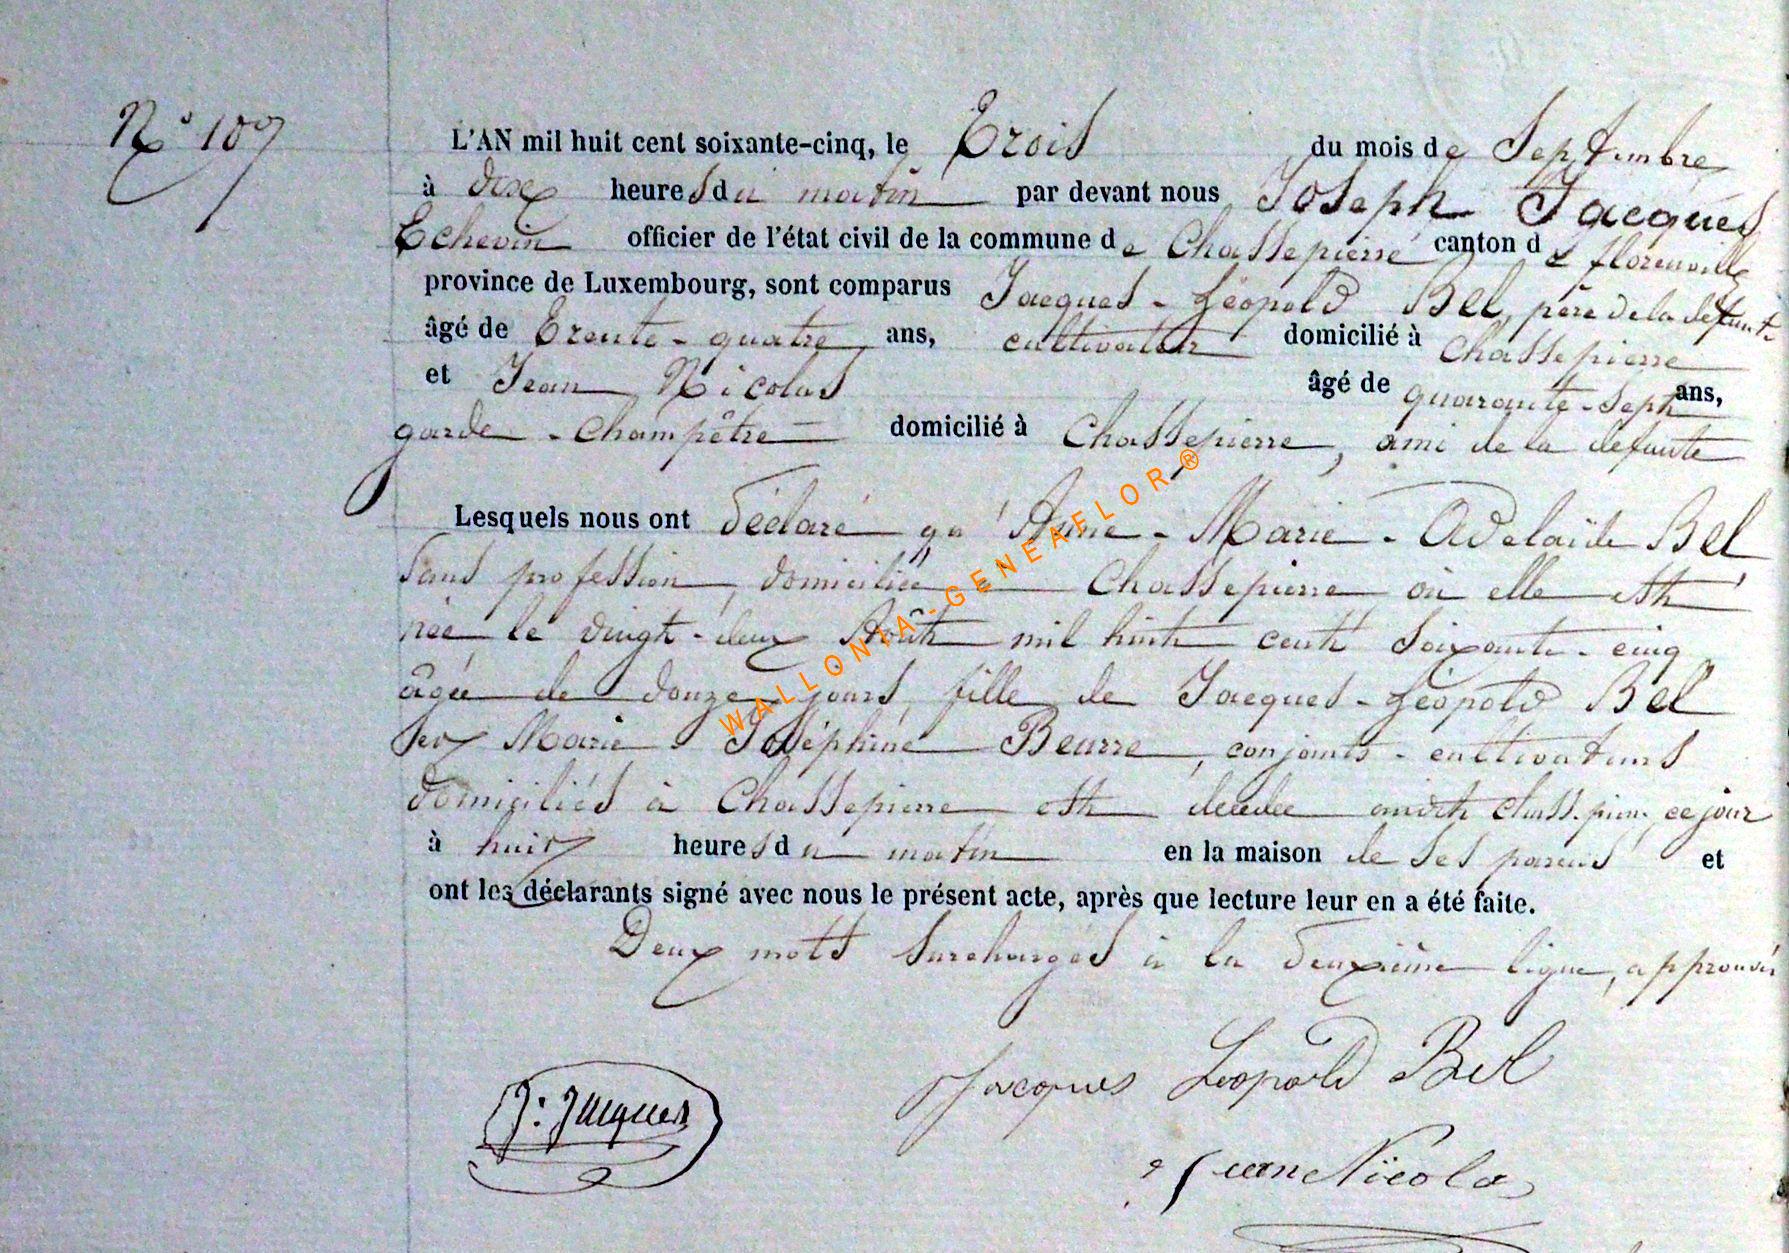 N° 107
L'AN mil huit cent soixante-cinq, le Trois du mois de Septembre
à dix heures du matin par devant nous Joseph Jacques
Echevin officier de l'état civil de la commune de Chassepierre canton de florenville
province de Luxembourg, sont comparus Jacques-Léopold Bel, père de la défunte
âgé de Trente-quatre ans, cultivateur domicilié à Chassepierre
et Jean Nicolas âgé de quarante-sept ans,
garde-Champêtre domicilié à Chassepierre, ami de la défunte
Lesquels nous ont déclaré qu'Anne-Marie-Adelaïde Bel
sans profession, domiciliée à Chassepierre où elle est
née le vingt-deux Août mil huit cent soixante-cinq
âgée de douze jours, fille de Jacques-Léopold Bel
et Marie Joséphine Beurre, conjoints-cultivateurs
domiciliés à Chassepierre est décédée audit Chassepierre, ce jour
à huit heures du matin en la maison de ses parents et
ont les déclarants signé avec nous le présent acte, après que lecture leur en a été faite.
Deux mots surchargés à la deuxième ligne, approuvés
Jacques Léopold Bel
J: Jacques
Jean Nicolas
WALLONIA-GENEAFLOR®